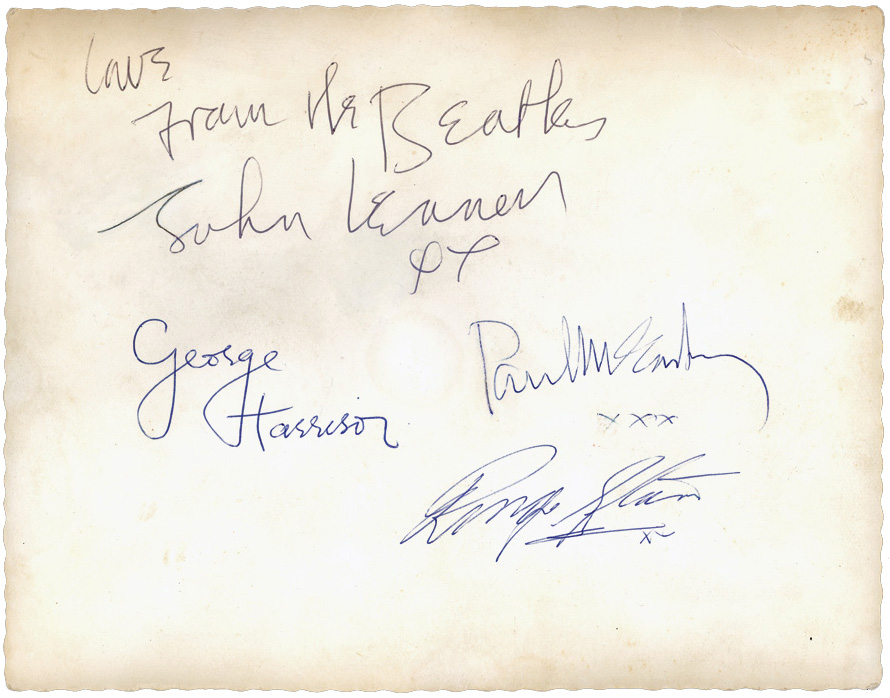 Love
From the Beatles
John Lennon
xx
George
Harrison
Paul McCartney
xxx
Ringo Starr
x